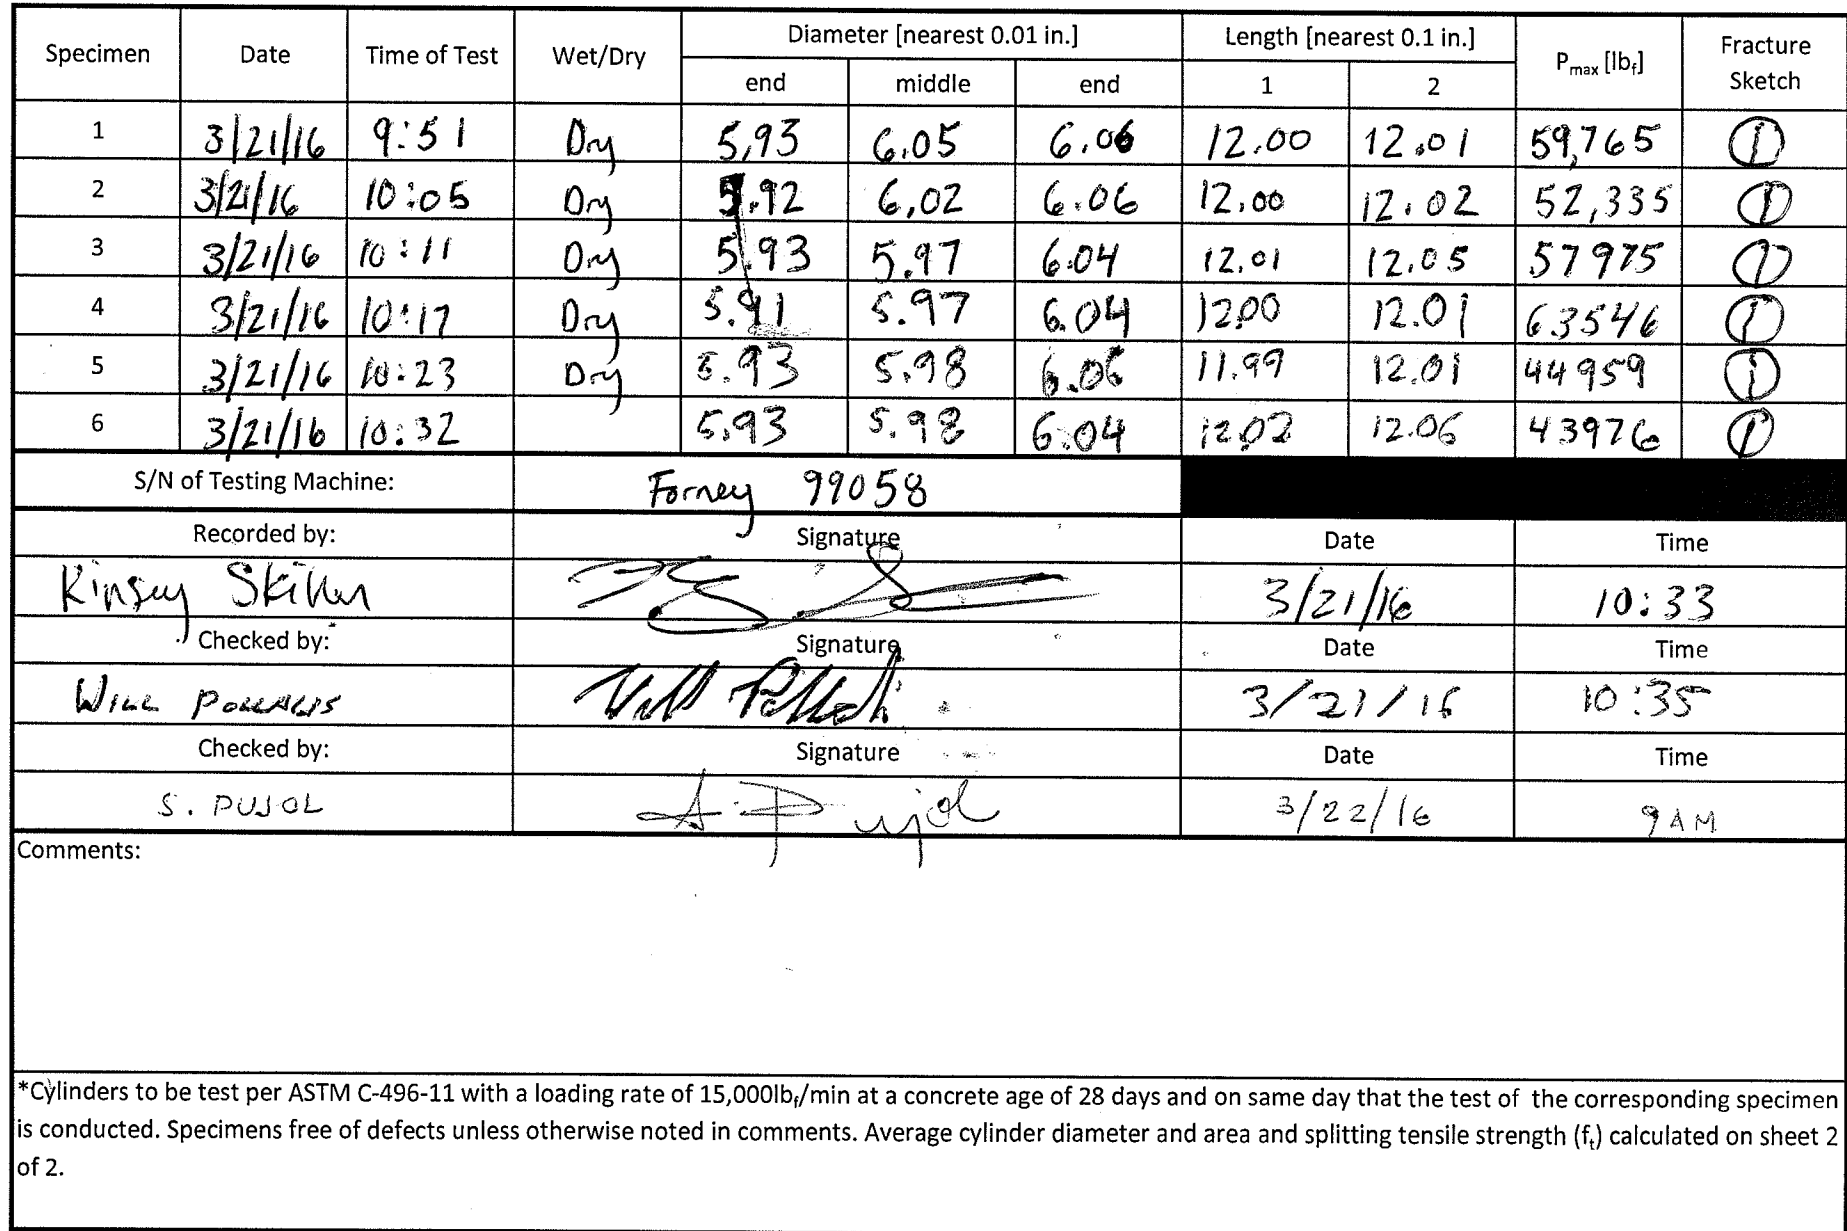 Specimen Date Time of Test Wet/Dry Diameter [nearest 0.01 in.] Length [nearest 0.1 in.] Pmax [lbf] Fracture Sketch
end middle end 1 2
1 3/21/16 9:51 Dry 5.93 6.05 6.06 12.00 12.01 59,765
2 3/21/16 10:05 Dry 5.92 6.02 6.06 12.00 12.02 52,335
3 3/21/16 10:11 Dry 5.93 5.97 6.04 12.01 12.05 57975
4 3/21/16 10:17 Dry 5.91 5.97 6.04 12.00 12.01 63546
5 3/21/16 10:23 Dry 5.93 5.98 6.06 11.99 12.01 44959
6 3/21/16 10:32 5.93 5.98 6.04 12.02 12.06 43976
S/N of Testing Machine: Forney 99058
Recorded by: Signature Date Time
Kinsey 3/21/16 10:33
Checked by: Signature Date Time
Will 3/21/16 10:35
Checked by: Signature Date Time
S. PUJOL S. Pujol 3/22/16 9 AM
Comments:
*Cylinders to be test per ASTM C-496-11 with a loading rate of 15,000lbf/min at a concrete age of 28 days and on same day that the test of the corresponding specimen
is conducted. Specimens free of defects unless otherwise noted in comments. Average cylinder diameter and area and splitting tensile strength (ft) calculated on sheet 2
of 2.